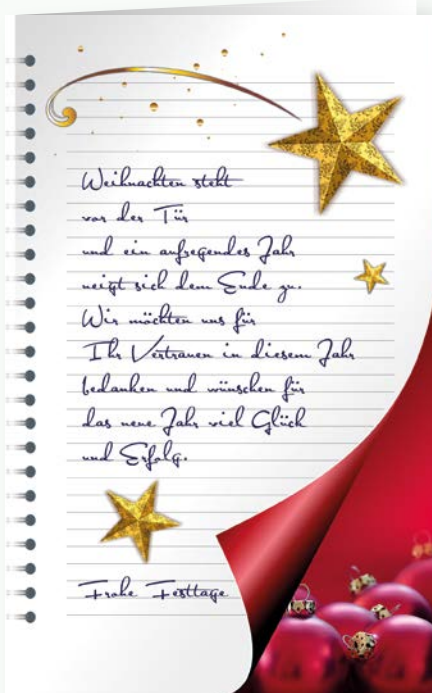 Weihnachten steht
vor der Tür
und ein aufregendes Jahr
neigt sich dem Ende zu.
Wir möchten uns für
Ihr Vertrauen in diesem Jahr
bedanken und wünschen für
das neue Jahr viel Glück
und Erfolg.
Frohe Festtage